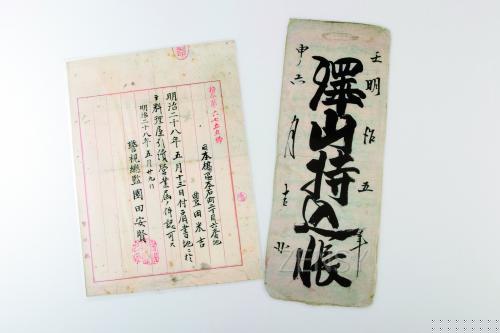 壬明治五年
澤山持込帳
申ノ六月吉日
第六七五五號
日本橋區本石町二丁目六番地
豊田米吉
明治二十八年五月十三日付
料理屋引續營業届ノ件認可ス
明治二十八年五月廿九日
警視總監園田安賢